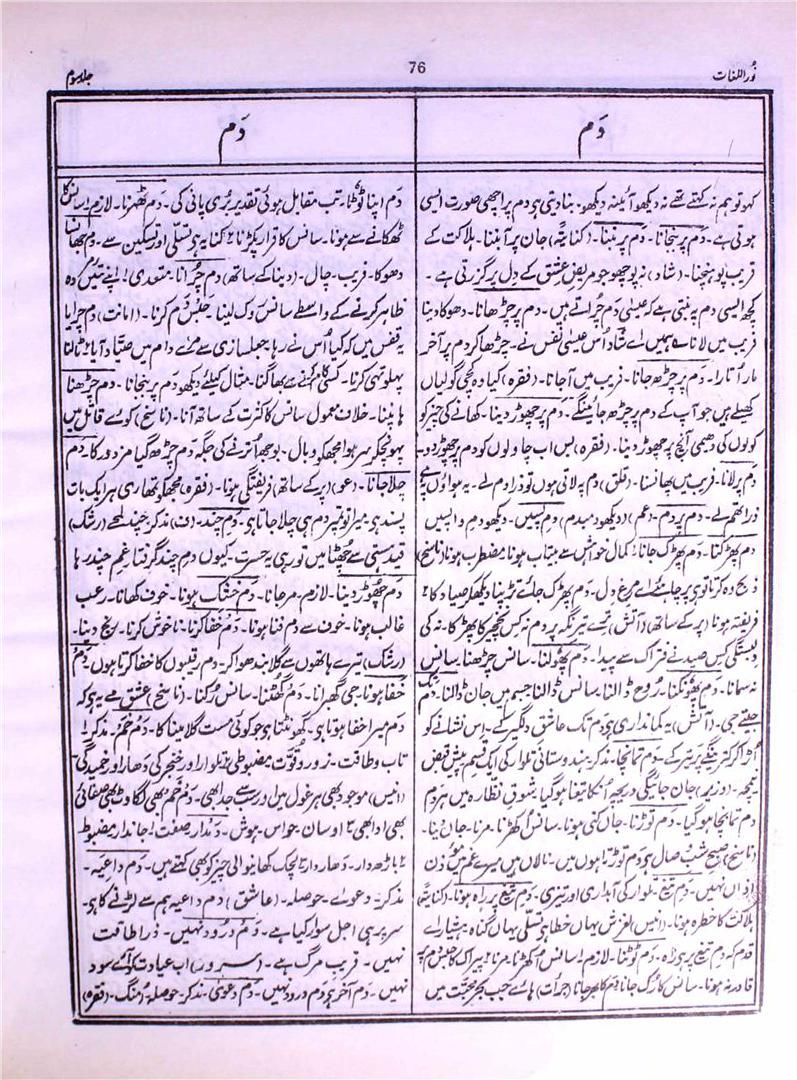 نُوراللغات
76
جلد سوم
دَم
دَم
کہو تو ہم نہ کہتے تھے نہ دیکھو آئینہ دیکھو۔ بنا دیتی ہی دم پر اچھی صورت ایسی
ہوتی ہے۔ دَم پر بنجانا۔ دَم پر بننا۔ (کنایۃً) جان پر آ بننا۔ ہلاکت کے
قریب پہونچنا۔ (شاد) نہ پوچھو جو مریض عشق کے دل پر گزرتی ہے۔
کچھ ایسی دم پہ بنتی ہے کہ عیسیٰ دم چراتے ہیں۔ دم پر چڑھانا۔ دھوکا دینا
فریب میں لانا ہمیں اے شاد اُس عیسیٰ نفس نے۔ چڑھا کر دم پر آخر
مار اُتارا۔ دَم پر چڑھ جانا۔ فریب میں آجانا۔ (فقرہ) کیا وہ کچی گولیاں
کھیلے ہیں جو آپ کے دم پر چڑھ جائینگے۔ دَم پر چھوڑ دینا۔ کھانے کی چیز کو
کوئلوں کی دھیمی آنچ پر چھوڑ دینا۔ (فقرہ) بس اب چاولوں کو دم پر چھوڑ دو۔
دَم پر لانا۔ فریب میں پھانسنا۔ (قلق) دم پہ لاتی ہوں تو ذرا دم لے۔
ذرا تھم لے۔ دَم پر دم۔ (عم) (دیکھو دمبدم) دَم پسیں۔ دیکھو دم واپسیں
دم پھڑکنا۔ دَم پھڑک جانا۔ کمال خواہش سے بیتاب ہونا مضطرب ہونا (ناسخ)
ذبح وہ کرتا تو ہی پر چاہئے اے مرغ دل۔ دم پھڑک جائے تڑپنا دیکھکر صیاد کا
فریفتہ ہونا (پر کے ساتھ) (آتش) تجھے تیر نگہ پر دم نہ کس نخچیر کا پھڑکا۔ نہ کی
وبستگی کس صید نے فتراک سے پیدا۔ دَم پھولنا۔ سانس چڑھنا۔ سانس
نہ سمانا۔ دَم پھونکنا۔ رُوح ڈالنا۔ سانس ڈالنا جسم میں جان ڈالنا۔ دَم تک
جیتے جی۔ (آتش) یہ کمانداری ہی دم تک عاشق دلگیر کے۔ اس نشانے کو
اُڑا کر تیر کے۔ دَم تمانچا۔ مذکر ہندوستانی تلوار کی ایک قسم پیش قبض
(وزیر) جان جائیگی دریچہ اُنکا تیغا ہو گیا۔ شوق نظارہ میں ہر دم
دم تمانچا ہو گیا۔ دَم توڑنا۔ جان کنی ہونا۔ سانس اُکھڑنا۔ مرنا۔ جان دینا۔
(ناسخ) صبح شب وصال ہی دم توڑتا ہوں میں۔ نالاں ہیں میرے غم میں مؤذن
اذاں نہیں۔ دَم تیغ۔ تلوار کی آبداری اور تیزی۔ دَم تیغ پر راہ ہونا۔ (کنایۃً)
ہلاکت کا خطرہ ہونا۔ (انیس) لغزش یہاں خطا ہی تسلی یہاں گناہ۔ ہشیار اے
قدم کہ دم تیغ پر ہی راہ۔ دَم ٹوٹنا۔ لازم۔ سانس اُکھڑنا۔ مرنا۔ پیراک کا حبس دم پر
قادر نہ ہونا۔ سانس کا رُک جانا دَم کا بھر جانا (جرأت) ہائے جب بحر محبت میں
دَم اپنا ٹوٹا۔ تب مقابل ہوئی تقدیر بُری پانی کی۔ دَم ٹھہرنا۔ لازم۔ سانس کا
ٹھکانے سے ہونا۔ سانس کا قرار پکڑنا۔ رُکنا یہ ہی تسلی اور تسکین سے۔
دھوکا۔ فریب۔ چال۔ (دینا کے ساتھ) دم چُرانا۔ متعدی۔ اپنے تئیں مُردہ
ظاہر کرنے کے واسطے سانس روک لینا۔ حبس دم کرنا۔ (امانت) دم چرایا
یہ قفس میں کہ گیا اُس نے رہا۔ جعلسازی سے مرے دام میں صیّاد آیا۔ ٹالنا
پہلوتہی کرنا۔ کسی کام کرنے سے بھاگنا۔ مثال کیلئے دیکھو دَم پر بنجانا۔ دَم چڑھنا
ہانپنا۔ خلاف معمول سانس کا کثرت کے ساتھ آنا۔ (ناسخ) کوئے قاتل میں
پہونچکر سر ہوا مجھکو وبال۔ بوجھ اُترنے کی جگہ دَم چڑھ گیا مزدور کا۔ دَم
چلا جانا۔ (عو) (پر کے ساتھ) فریفتگی ہونا۔ (فقرہ) مجھکو تمھاری ہر ایک بات
پسند ہی میرا تو تمپر دم ہی چلا جاتا ہی۔ دَم چند۔ (ف) مذکر۔ چند لمحے (رشک)
قید ہستی سے چھٹا میں تو رہی یہ حسرت۔ کیوں دم چند گرفتار غم چند رہا
دَم چھوڑ دینا۔ لازم۔ مر جانا۔ دَم خشک ہونا۔ خوف کھانا۔ رعب
غالب ہونا۔ خوف سے دَم فنا ہونا۔ دَم خفا کرنا۔ ناخوش کرنا۔ رنج دینا۔
(رشک) تیرے ہاتھوں سے گلا بندھوا کر۔ دم رقیبوں کا خفا کرتا ہوں۔ دَم
خفا ہونا۔ جی گھبرانا۔ دَم گھٹنا۔ سانس رُکنا۔ (ناسخ) عشق مے یہی کہ
دم میرا خفا ہوتا ہی۔ گھونٹتا ہی جو کوئی مست گلا مینا کا۔ دَم خَم۔ مذکر۔
تاب و طاقت۔ زور و قوت مضبوطی۔ تلوار اور خنجر کی دھار اور خمیدگی
(انیس) موجود بھی ہر غول میں اور سب سے جدا بھی۔ دم خم بھی لگاوٹ بھی صفائی
بھی ادا بھی۔ اوسان۔ حواس۔ ہوش۔ دَمدار صفت۔ جاندار مضبوط
باڑھ دار۔ دھار دار۔ لچک کھانیوالی چیز کو بھی کہتے ہیں۔ دَم داعیہ۔
مذکر۔ دعوے۔ حوصلہ۔ (عاشق) دم داعیہ ہم سے لڑنے کا ہی۔
سر پر ہی اجل سوار کیا ہے۔ دَم دُرود نہیں۔ ذرا طاقت
نہیں۔ قریب مرگ ہے۔ (سرور) اب عیادت کو آئے سود
نہیں۔ دَم آخر ہی دَم درود نہیں۔ دَم دعویٰ۔ مذکر۔ حوصلہ۔ اُمنگ۔ (فقرہ)